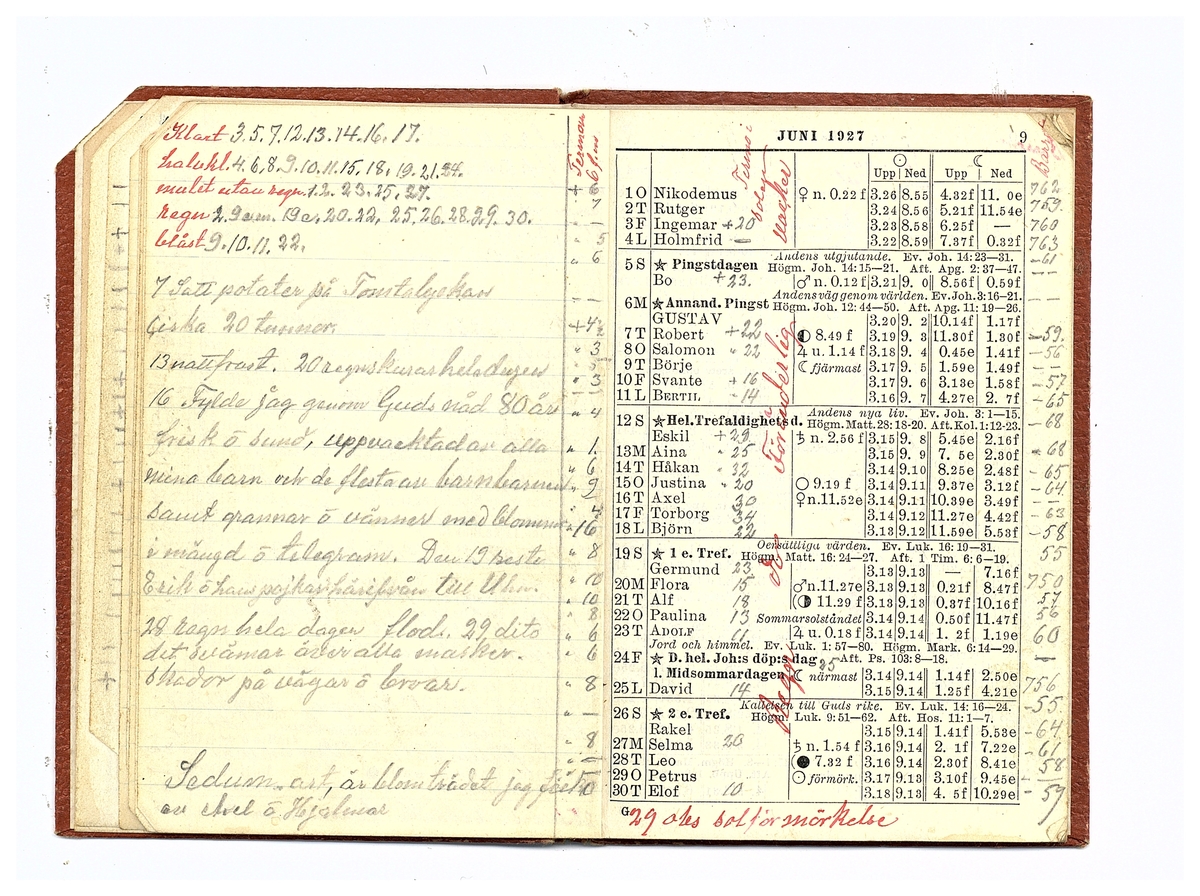 Klart 3.5.7.12.13.14.16.17.
halvkl. 4.6.8.9.10.11.15.18.19.21.24.
mulet utan regn 1.2.23.25.27.
regn 2.9em.19a.20.22.25.26.28.29.30.
blåst 9.10.11.22.
7 Satt potater på
20 tunnor.
13 nattfrost. 20 regnskurar hela dagen
16 Fylde jag genom Guds nåd 80 år
frisk ö sund, uppvacktad av alla
mina barn och de flesta av barnbarnen
samt grannar ö vänner med blommor
i mängd ö telegram. Den 19 reste
Erik ö hans pojkar härifrån till
28 regn hela dagen flod. 29 dito
det svämar över alla marker.
skador på vägar ö broar.
Sedum art, är blomträdet jag
av Axel ö Hjalmar
+ 6
7
" 5
" 6
+4
" 3
" 3
" 4
" 1
" 6
" 2
" 4
16
" 8
" 10
" 10
" 8
" 6
" 6
" 8
" —
" 8
" —
JUNI 1927
9
Upp Ned Upp Ned
1 O Nikodemus ♀ n. 0.22 f 3.26 8.55 4.32f 11. 0e 762
2 T Rutger 3.24 8.56 5.21f 11.54e 759
3 F Ingemar +20 3.23 8.58 6.25f — 760
4 L Holmfrid — 3.22 8.59 7.37f 0.32f 763
Andens utgjutande. Ev. Joh. 14: 23—31.
5 S ★ Pingstdagen Högm. Joh. 14: 15—21. Aft. Apg. 2: 37—47. -61
Bo +23. ♂ n. 0.12 f 3.21 9. 0 8.56f 0.59f
Andens väg genom världen. Ev. Joh. 3: 16—21.
6 M ★ Annand. Pingst Högm. Joh. 12: 44—50. Aft. Apg. 11: 19—26.
GUSTAV 3.20 9. 2 10.14f 1.17f
7 T Robert +22 8.49 f 3.19 9. 3 11.30f 1.30f -59
8 O Salomon " 22 ♃ u. 1.14 f 3.18 9. 4 0.45e 1.41f -56
9 T Börje ☾ fjärmast 3.17 9. 5 1.59e 1.49f
10 F Svante +16 3.17 9. 6 3.13e 1.58f -57
11 L BERTIL " 14 3.16 9. 7 4.27e 2. 7f -65
Andens nya liv. Ev. Joh. 3: 1—15.
12 S ★ Hel. Trefaldighetsd. Högm. Matt. 28: 18-20. Aft. Kol. 1: 12-23. -68
Eskil ♄ n. 2.56 f 3.15 9. 8 5.45e 2.16f
13 M Aina " 25 3.15 9. 9 7. 5e 2.30f -68
14 T Håkan " 32 3.14 9.10 8.25e 2.48f -65
15 O Justina " 20 ○ 9.19 f 3.14 9.11 9.37e 3.12f -64
16 T Axel 30 ♀ n. 11.52e 3.14 9.11 10.39e 3.49f —
17 F Torborg 34 3.14 9.12 11.27e 4.42f -63
18 L Björn 22 3.13 9.12 11.59e 5.53f -58
Oersättliga värden. Ev. Luk. 16: 19—31.
19 S ★ 1 e. Tref. Högm. Matt. 16: 24—27. Aft. 1 Tim. 6: 6—19. 55
Germund 23 3.13 9.13 — 7.16f
20 M Flora 15 ♂ n. 11.27e 3.13 9.13 0.21f 8.47f 750
21 T Alf 18 11.29 f 3.13 9.13 0.37f 10.16f 57
22 O Paulina 13 Sommarsolståndet 3.14 9.14 0.50f 11.47f 56
23 T ADOLF 11 ♃ u. 0.18 f 3.14 9.14 1. 2f 1.19e 60
Jord och himmel. Ev. Luk. 1: 57—80. Högm. Mark. 6: 14—29.
24 F ★ D. hel. Joh:s döp:s dag 25 Aft. Ps. 103: 8—18.
l. Midsommardagen ☾ närmast 3.14 9.14 1.14f 2.50e
25 L David 14 3.15 9.14 1.25f 4.21e 756
Kallelsen till Guds rike. Ev. Luk. 14: 16—24. -55
26 S ★ 2 e. Tref. Högm. Luk. 9: 51—62. Aft. Hos. 11: 1—7.
Rakel 3.15 9.14 1.41f 5.53e -64
27 M Selma 20 ♄ n. 1.54 f 3.16 9.14 2. 1f 7.22e -61
28 T Leo 7.32 f 3.16 9.14 2.30f 8.41e 58
29 O Petrus ☉ förmörk. 3.17 9.13 3.10f 9.45e —
30 T Elof 10 3.18 9.13 4. 5f 10.29e -59
vacker
Föränderlig
Regn
G
29 obs solförmörkelse